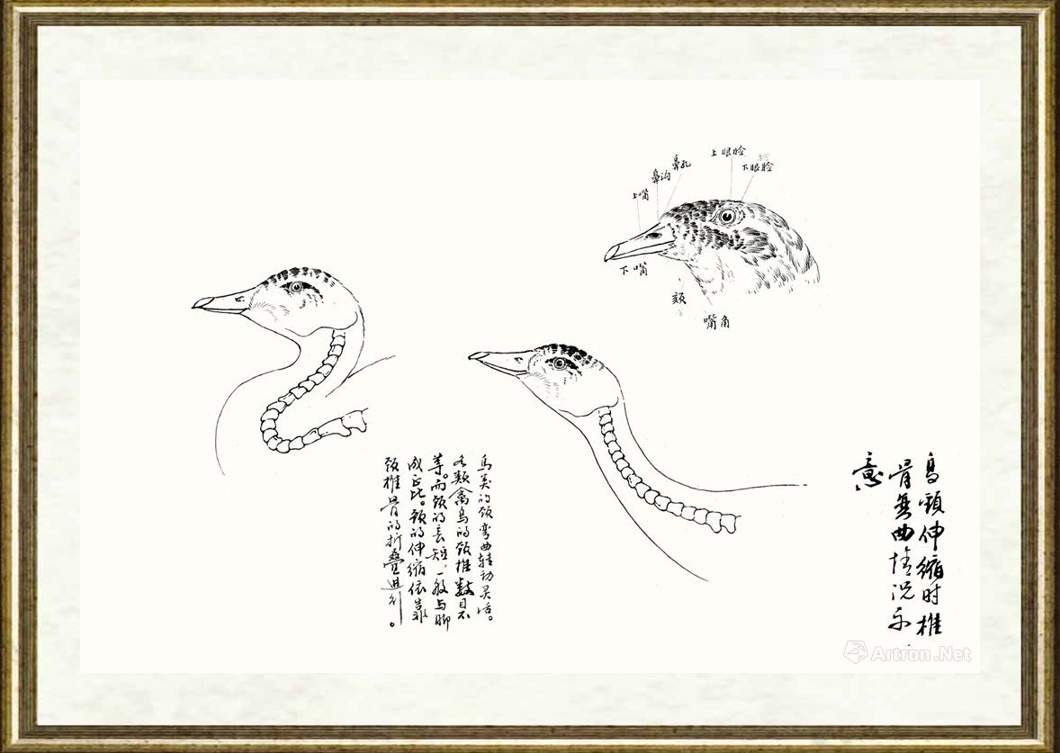 上眼睑
下眼睑
鼻孔
鼻沟
上嘴
下嘴
嘴角
鸟类的颈弯曲转动灵活。
各类禽鸟的颈椎数目不
等。而颈的长短,一般与脚
成正比。颈的伸缩依靠
颈椎骨的折叠进行。
鸟颈伸缩时椎
骨弯曲情况示
意
Artron.Net